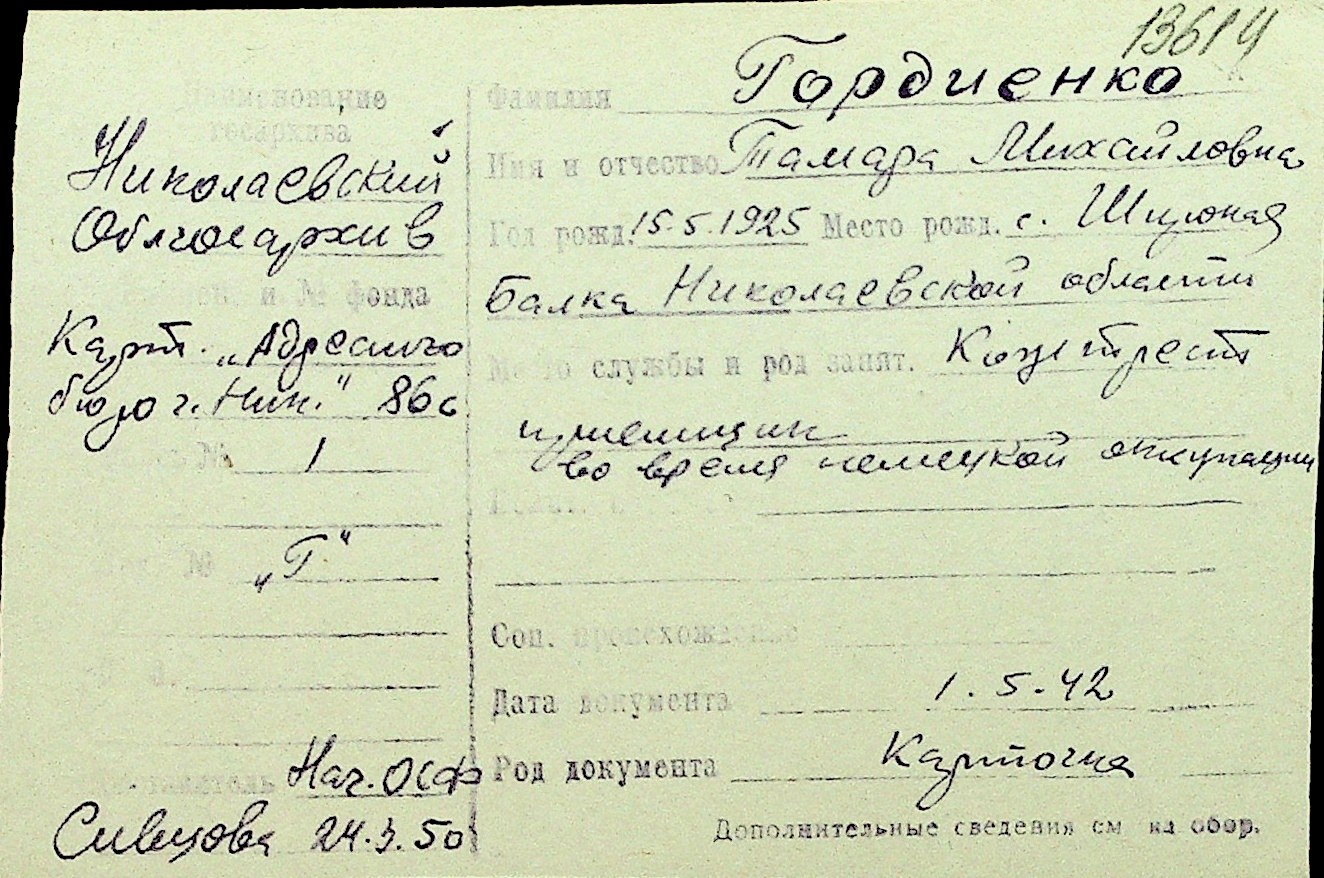 13614
Наименование
госархива
Николаевский
Облгосархив
и № фонда
Карт. „Адресного
бюро г. Ник." 86с
№ 1
№ „Г"
Нач. ОСФ
Сивцова 24.3.50
Фамилия Гордиенко
Имя и отчество Тамара Михайловна
Год рожд. 15.5.1925 Место рожд. с. Широкая
Балка Николаевской области
Место службы и род занят.
во время немецкой оккупации
Соц. происхождение
Дата документа 1.5.42
Род документа Карточка
Дополнительные сведения см на обор.